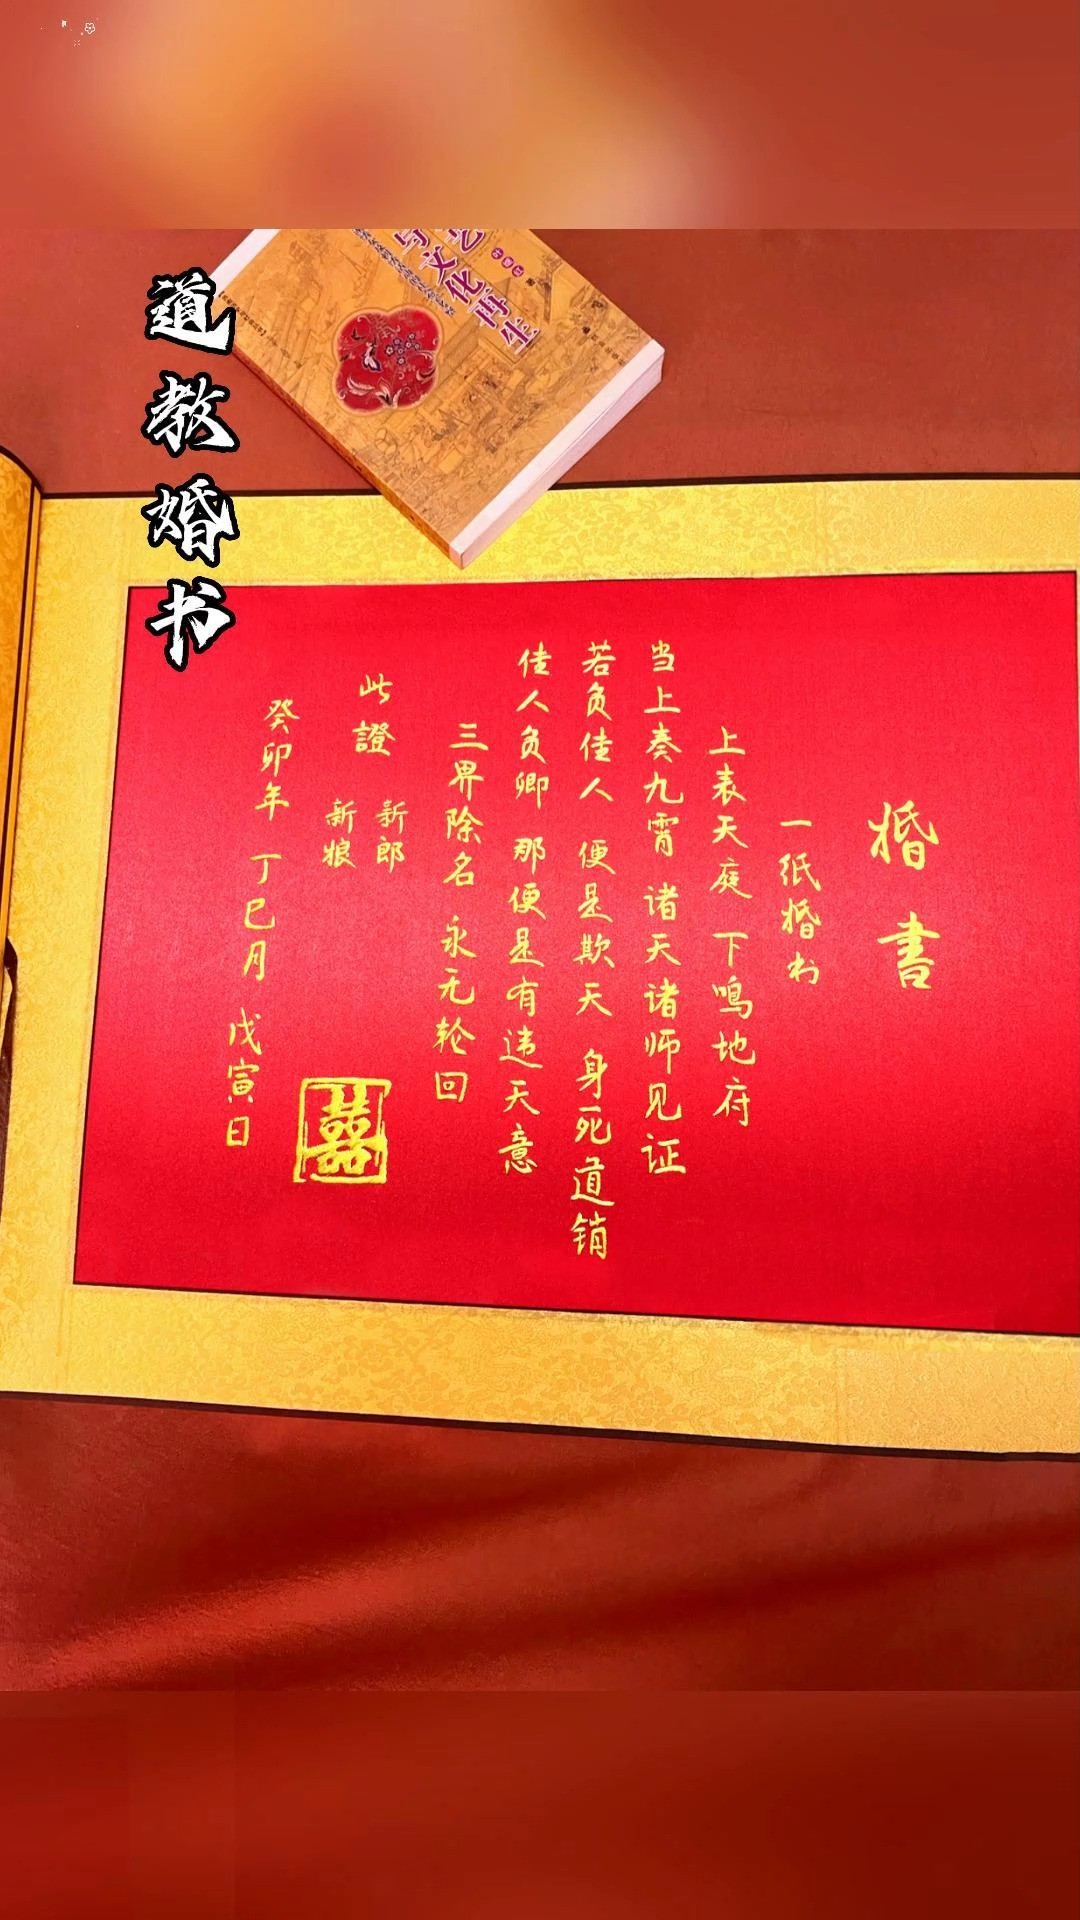 道教婚书
文化再生
婚書
一纸婚书
上表天庭 下鸣地府
当上奏九霄 诸天诸师见证
若负佳人 便是欺天 身死道销
佳人负卿 那便是有违天意
三界除名 永无轮回
此證 新郎
新娘
癸卯年 丁巳月 戊寅日
囍